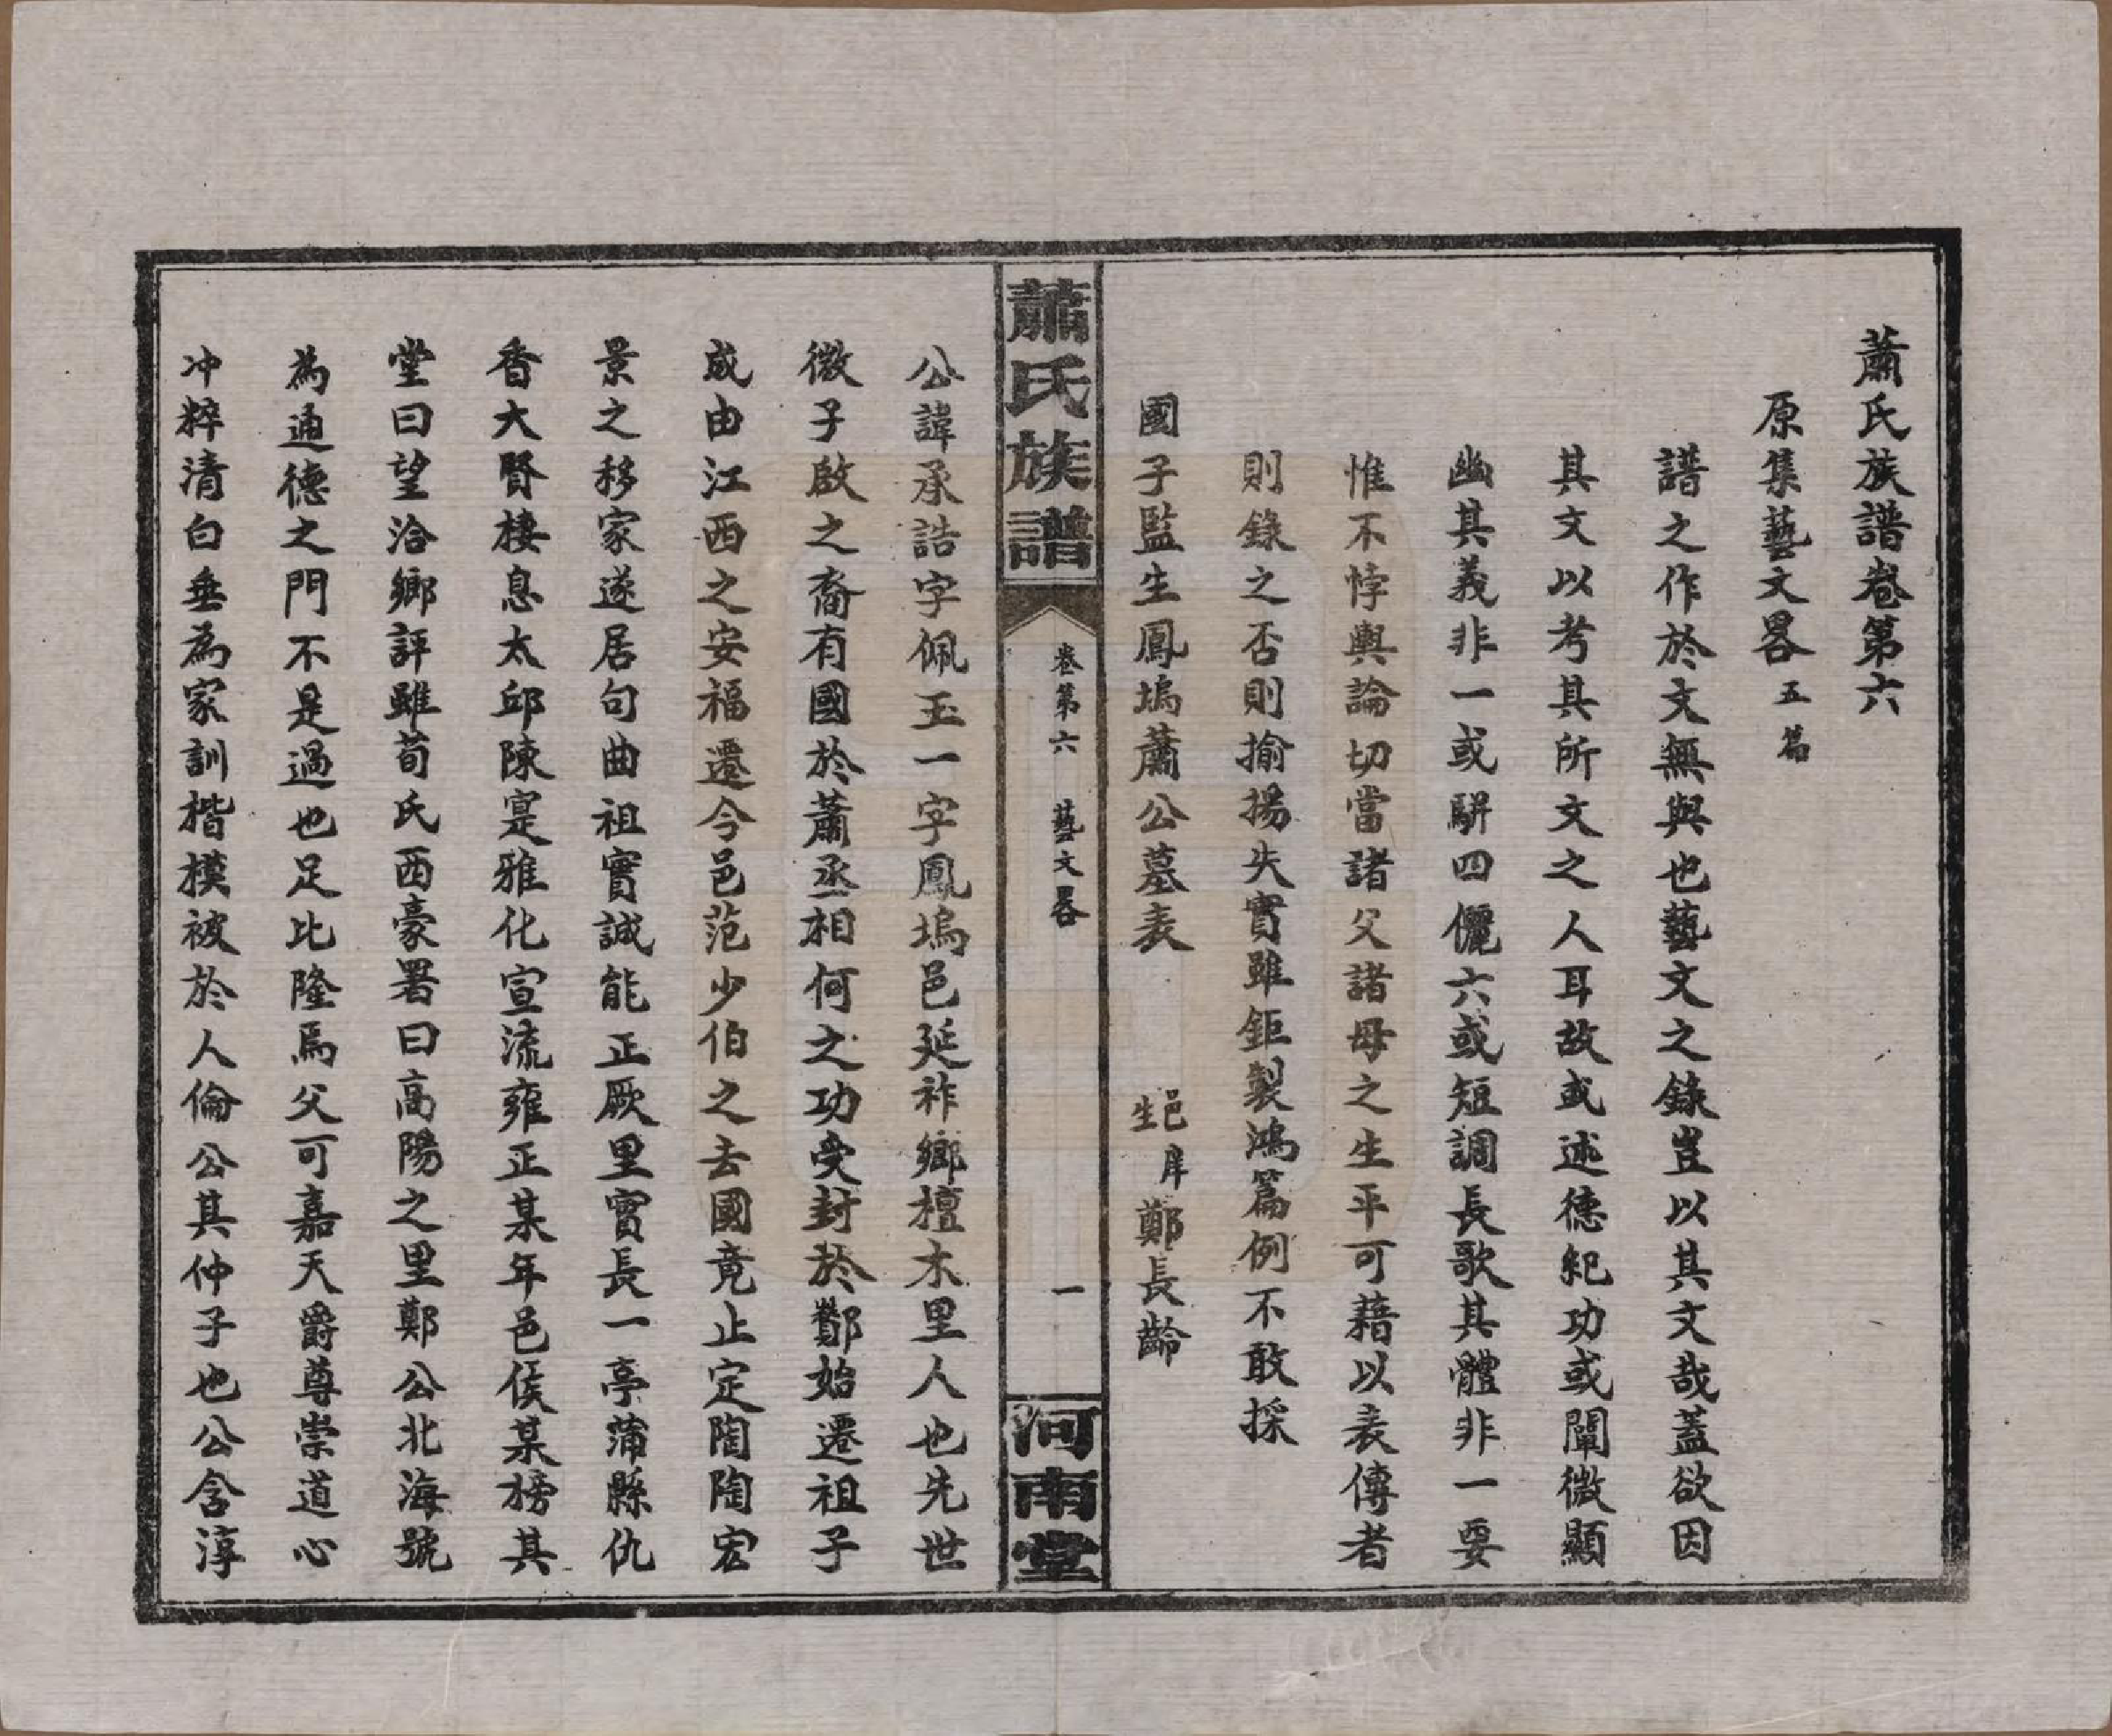 蕭氏族譜卷第六
原集藝文畧五篇
譜之作於文無與也藝文之錄豈以其文哉蓋欲因
其文以考其所文之人耳故或述德紀功或闡微顯
幽其義非一或駢四儷六或短調長歌其體非一要
惟不悖輿論切當諸父諸母之生平可藉以表傳者
則錄之否則揄揚失實雖鉅製鴻篇例不敢採
國子監生鳳塢蕭公墓表 邑庠生鄭長齡
蕭氏族譜 卷第六 藝文畧 一 河南堂
公諱承誥字佩玉一字鳳塢邑延祚鄉檀木里人也先世
微子啟之裔有國於蕭丞相何之功受封於酇始遷祖子
成由江西之安福遷今邑范少伯之去國竟止定陶陶宏
景之移家遂居句曲祖實誠能正厥里實長一亭蒲縣仇
香大賢棲息太邱陳寔雅化宣流雍正某年邑侯某榜其
堂曰望洽鄉評雖荀氏西豪署曰高陽之里鄭公北海號
為通德之門不是過也足比隆焉父可嘉天爵尊崇道心
冲粹清白垂為家訓楷模被於人倫公其仲子也公含淳